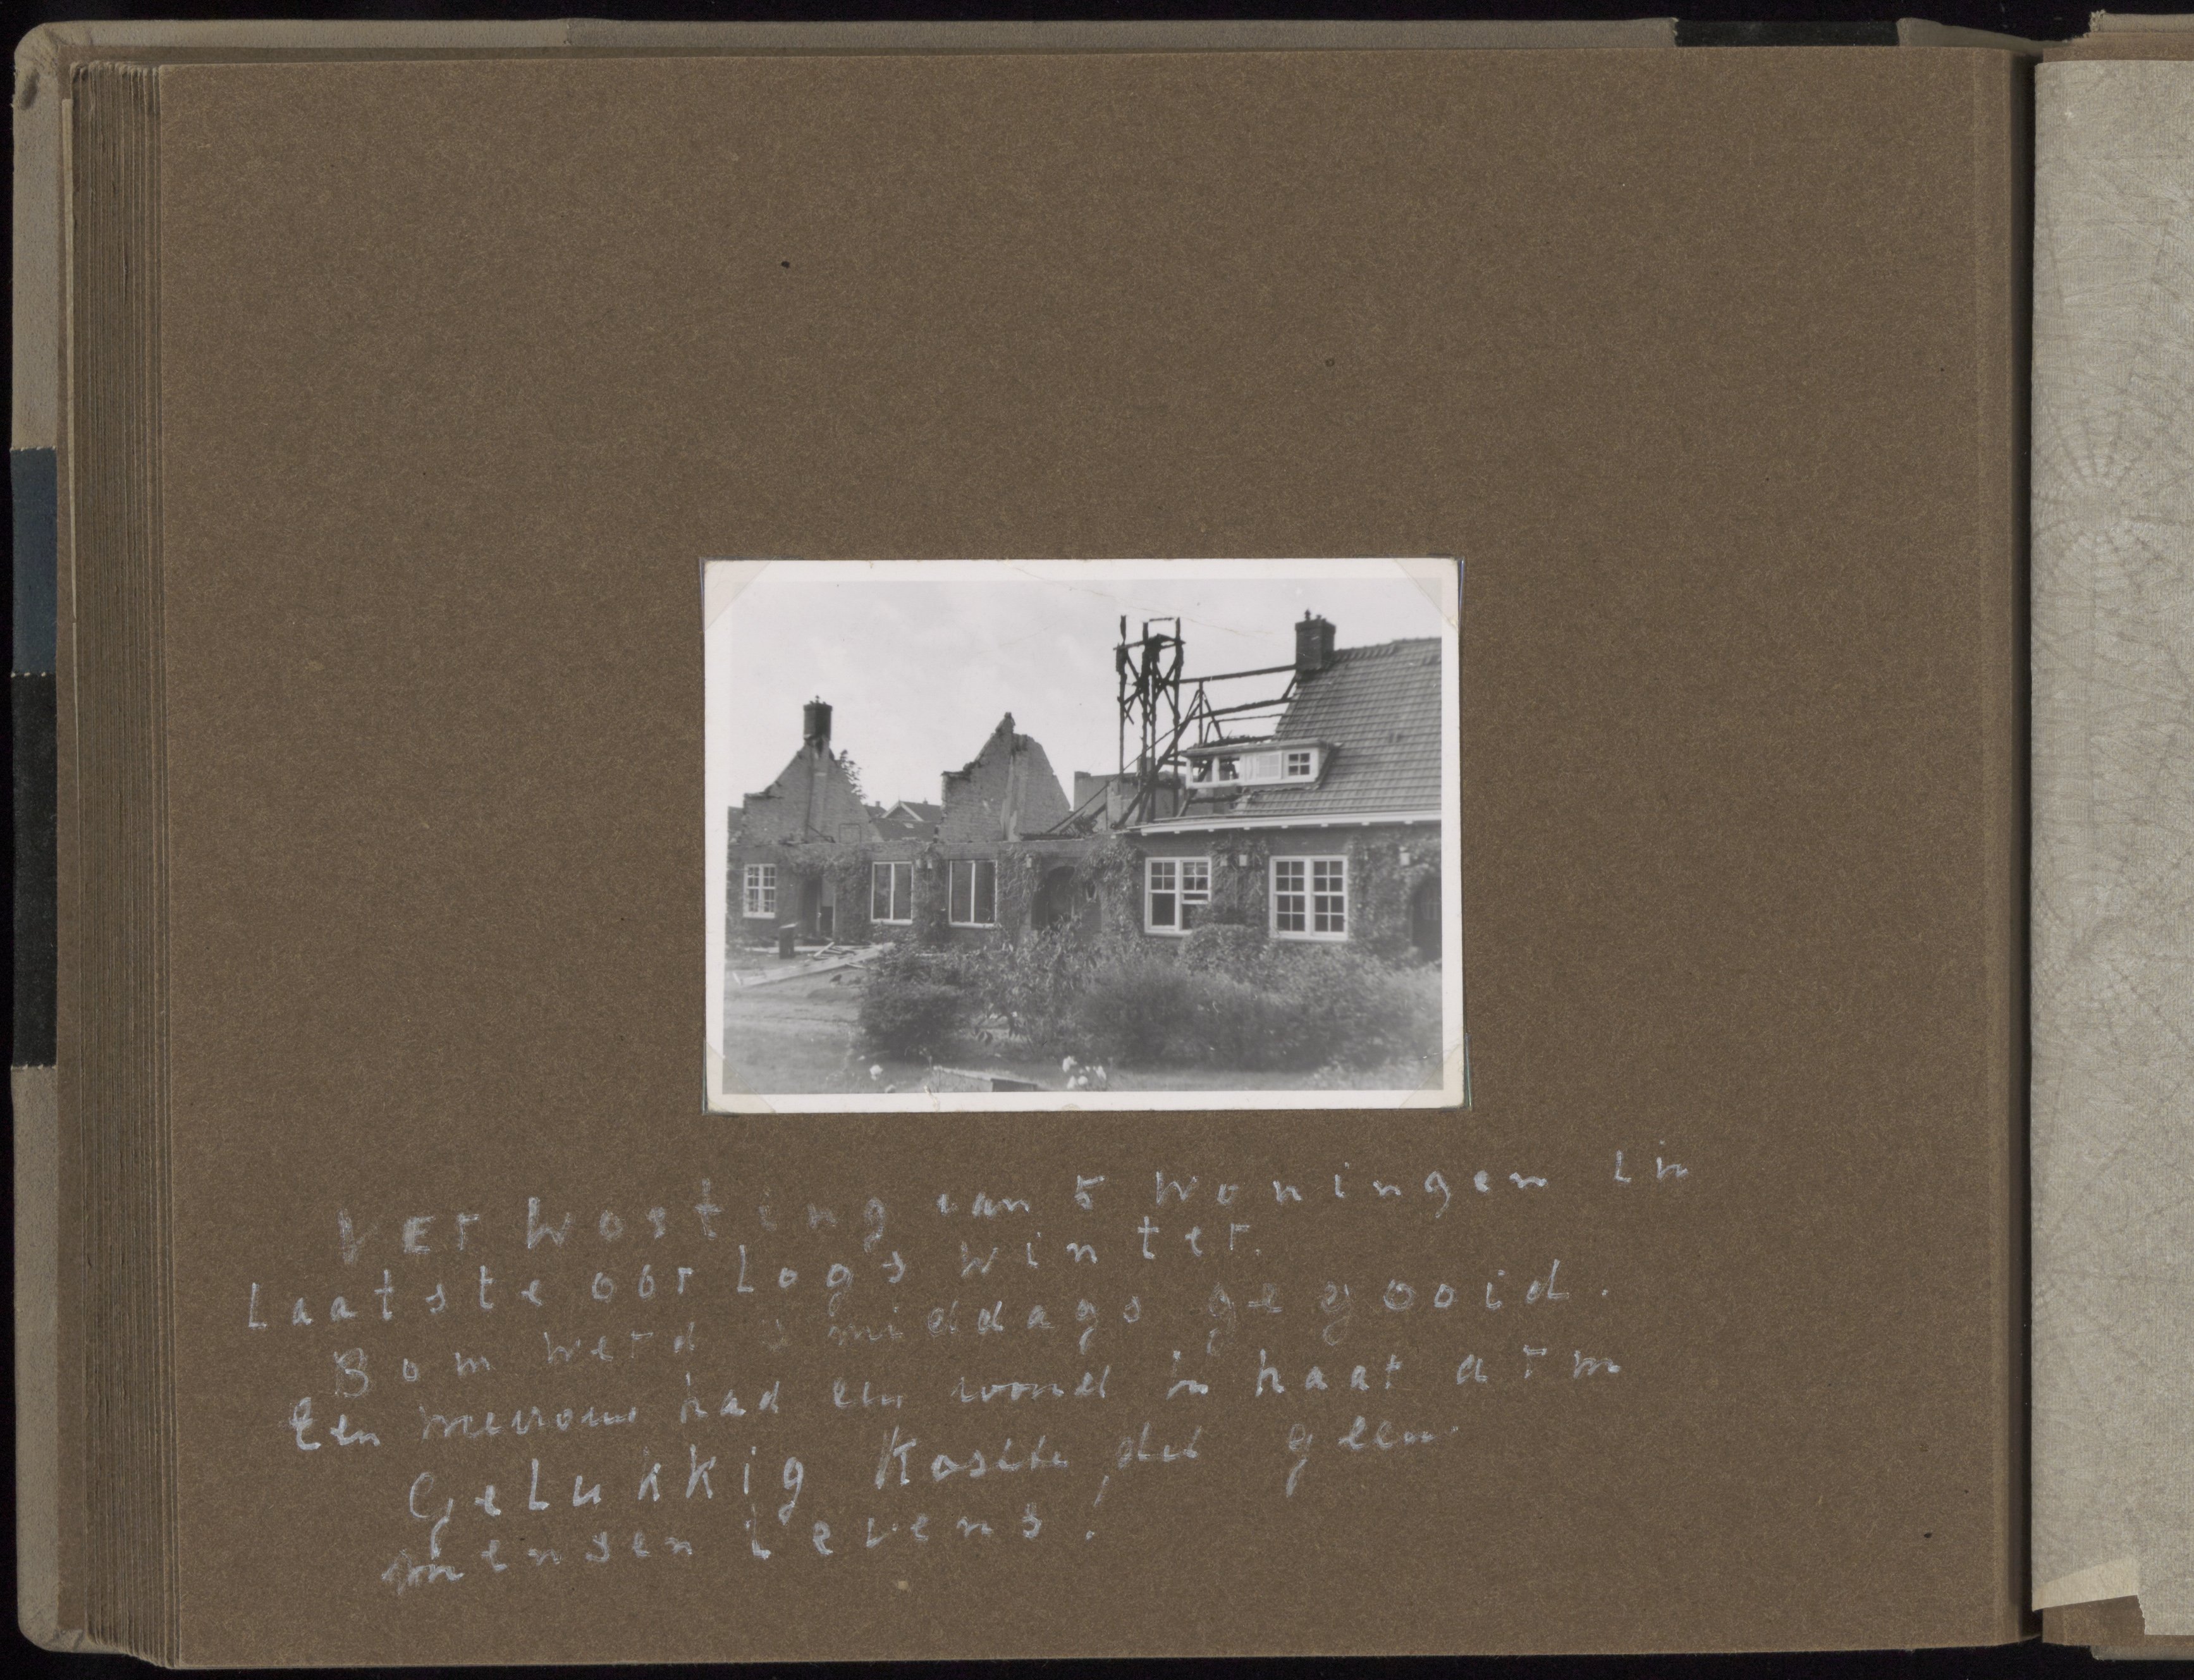 Verwosting van 5 woningen in
Laatste oorLogs winter.
Bom werd s middags gegooid.
Een mevrouw had een wond in haar arm
GeLukkig Kostte het geen
mensen levens.